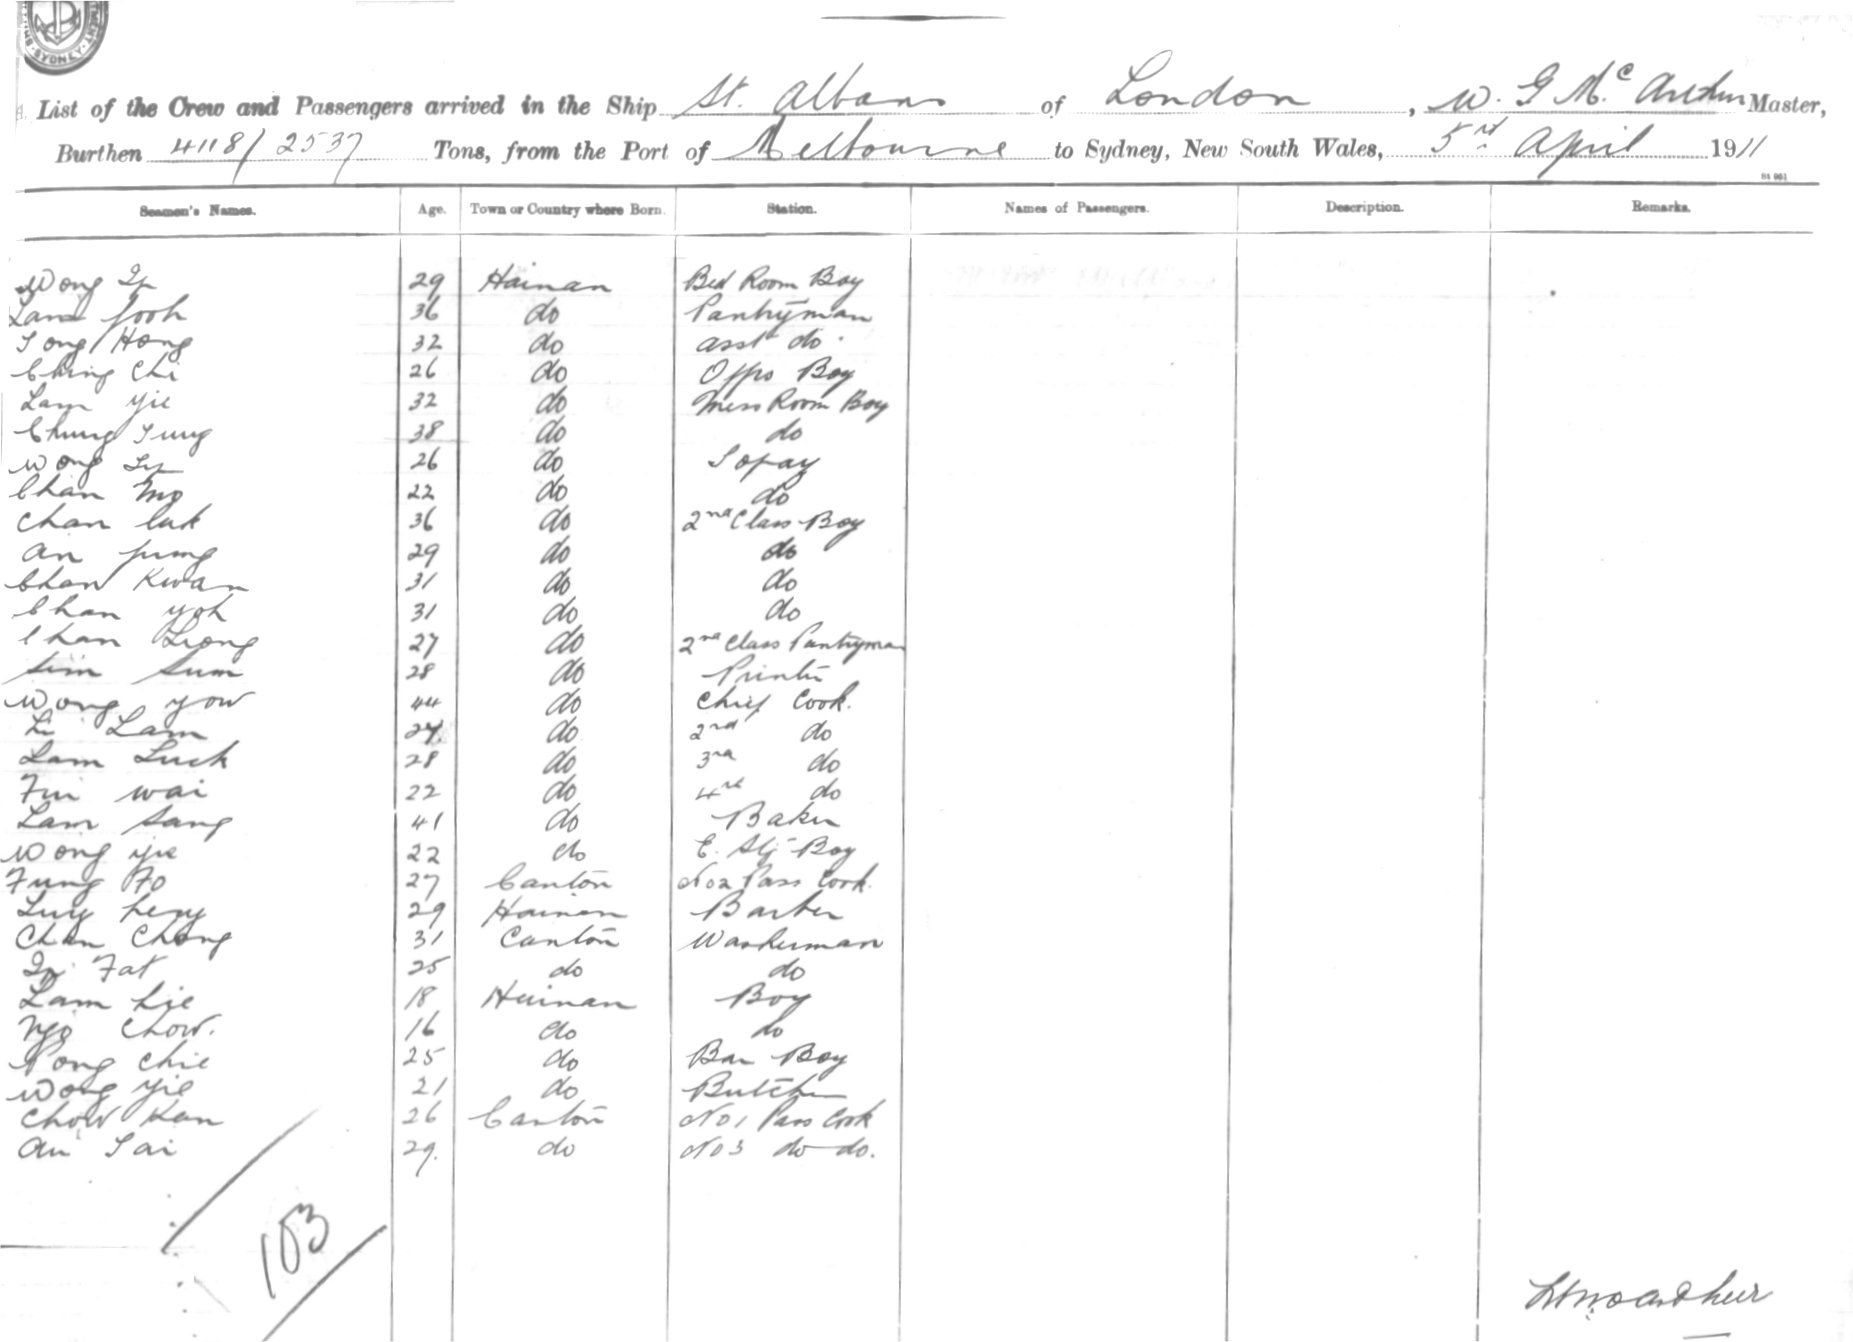 SYDNEY
List of the Crew and Passengers arrived in the Ship St. Albans of London, W. G Mc Arthur Master,
Burthen 4118/2537 Tons, from the Port of Melbourne to Sydney, New South Wales, 5rd April 1911
Seamen's Names. Age. Town or Country where Born. Station. Names of Passengers. Description. Remarks.
Wong 29 Hainan Bed Room Boy
Lam fooh 36 do Pantryman
Tong Hong 32 do asst do.
Ching Chi 26 do Offrs Boy
Lam Yie 32 do Mess Room Boy
Chung Tung 38 do do
Wong 26 do Topay
Chan Mo 22 do do
Chan Luk 36 do 2nd Class Boy
An fung 29 do do
Chan Kwan 31 do do
Chan yoh 31 do do
Chan Liong 27 do 2nd Class Pantryman
Sim Sum 28 do Printer
Wong yow 44 do Chief Cook.
Li Lam 24 do 2nd do
Lam Luck 28 do 3rd do
Fui wai 22 do 4th do
Lam Sang 41 do Baker
Wong yie 22 do Boy
Fung Fo 27 Canton No 2 Pass Cook.
29 Hainan Barber
Chan Chong 31 Canton Washerman
Fat 25 do do
Lam hie 18 Hainan Boy
Ngo Chow. 16 do do
Pong Chie 25 do Bar Boy
Wong Yie 21 do Butcher
Chow Kan 26 Canton No 1 Pass Cook
Au Tai 29. do No 3 do do.
103
McArthur